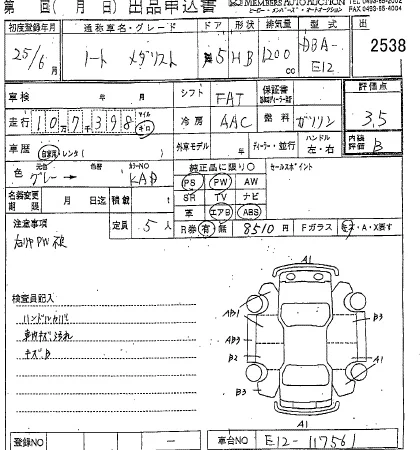 第 回( 月 日) 出品申込書 MEMBERS AUTO AUCTION
初度登録年月 通称車名・グレード ドア 形状 排気量 型式 出
25/6 ノート メダリスト 5 HB 1200cc DBA-E12 2538
車検 年 月 シフト FAT 保証書 評価点
走行 107398 マイル キロ 冷房 AAC 燃料 ガソリン 3.5
車歴 自家用 レンタ( ) 外車モデル 年 ディーラー・並行 ハンドル 左・右 内装評価 B
色 元色 グレー→ 色替 カラーNO KAD 純正品に限り○ セールスポイント
PS PW AW
名義変更期限 月 日迄 積載 t SR TV ナビ
定員 5人 革 エアB ABS
注意事項 R券 有 無 8510円 Fガラス キズ・A・X要す
右リヤPW不良
検査員記入
ハンドルカバー
車内キズ汚れ
キズB
A1
AB1 B3
AB3
B2 A1
B3
A1
登録NO ー 車台NO E12-117561